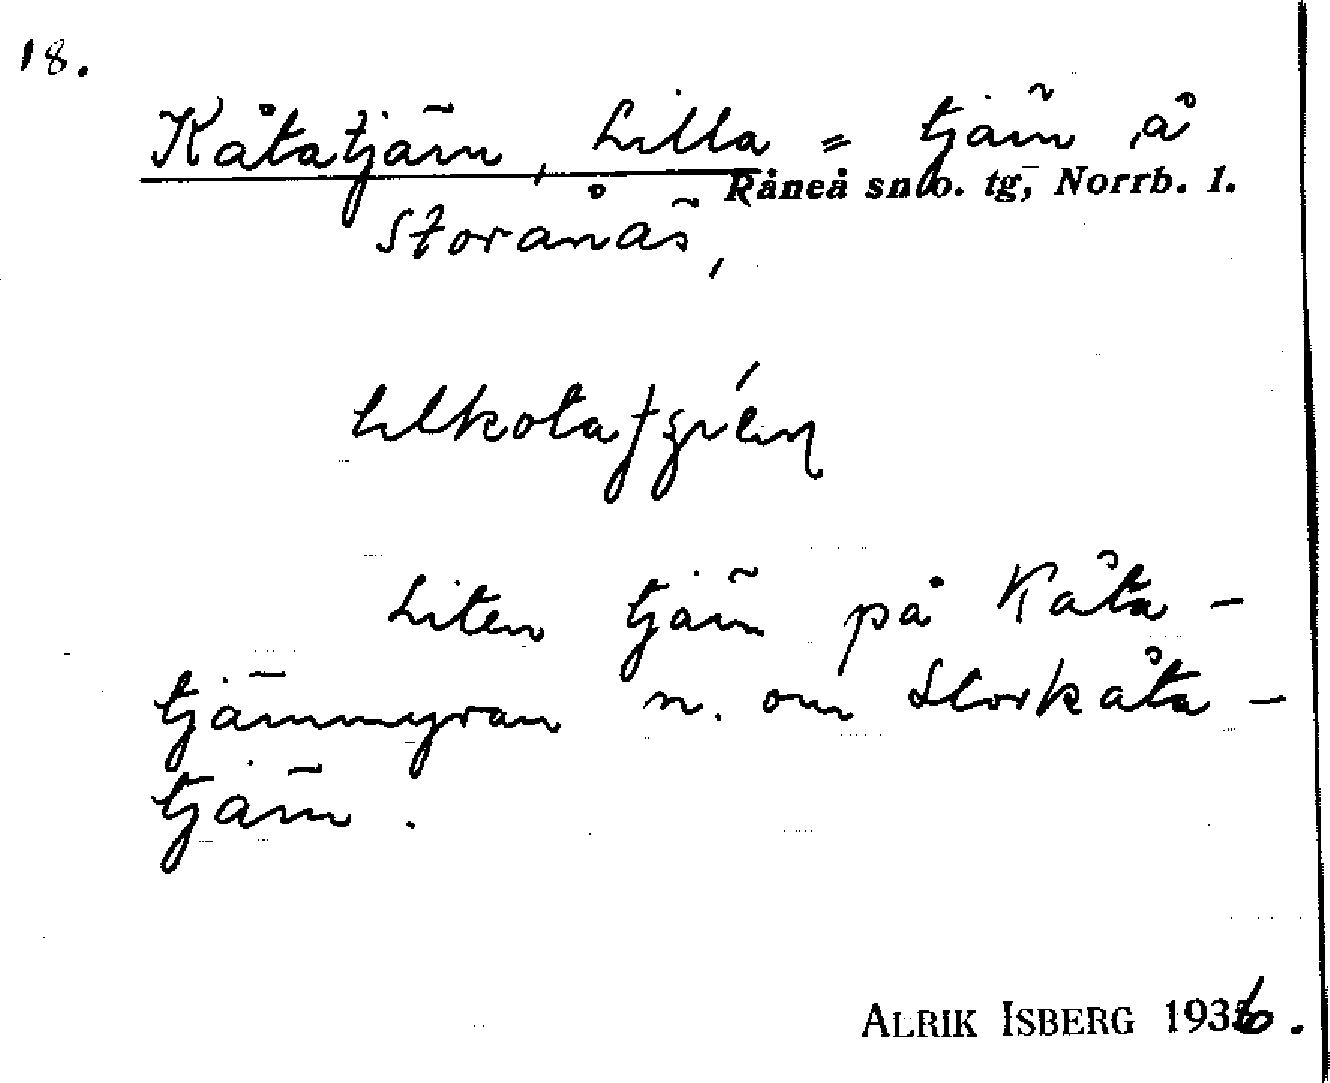 18.
Kåtatjärn, Lilla = tjärn å
Råneå sn o. tg, Norrb. l.
Storånäs,
Liten tjärn på Kåta-
tjärnmyran n. om Storkåta-
tjärn.
ALRIK ISBERG 1936.